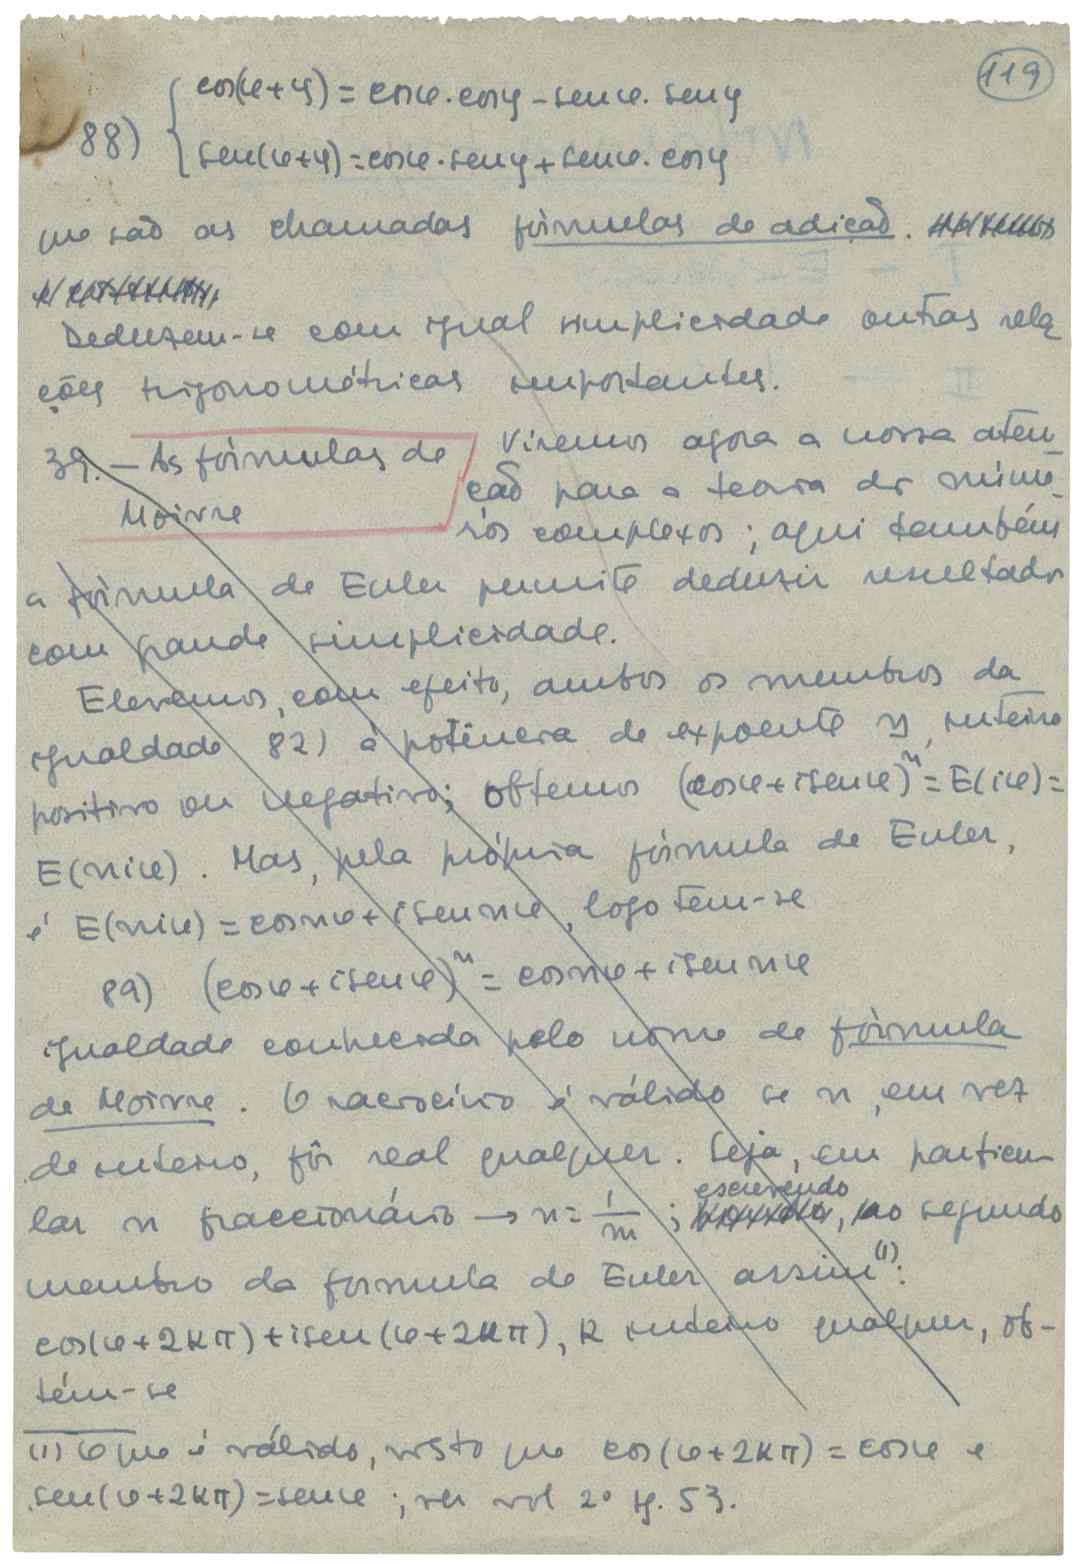 119
88) { cos(φ+ψ) = cosφ.cosψ - senφ.senψ
sen(φ+ψ) = cosφ.senψ + senφ.cosψ
que são as chamadas fórmulas de adição.
Deduzem-se com igual simplicidade outras rela
ções trigonométricas importantes.
39. — As fórmulas de
Moivre
Viremos agora a nossa aten
ção para a teoria dos núme-
ros complexos; aqui também
a fórmula de Euler permite deduzir resultados
com grande simplicidade.
Elevemos, com efeito, ambos os membros da
igualdade 82) à potência de expoente n, inteiro
positivo ou negativo; obtemos (cosφ+isenφ)ⁿ = E(iφ) =
E(niφ). Mas, pela própria fórmula de Euler,
é E(niφ) = cosnφ + isennφ, logo tem-se
89) (cosφ + isenφ)ⁿ = cosnφ + isennφ
igualdade conhecida pelo nome de fórmula
de Moivre. O raciocínio é válido se n, em vez
de inteiro, fôr real qualquer. Seja, em particu-
lar n fraccionário → n = 1/m ; escrevendo, no segundo
membro da fórmula de Euler assim⁽¹⁾:
cos(φ+2kπ) + isen(φ+2kπ), k inteiro qualquer, ob-
tém-se
(1) O que é válido, visto que cos(φ+2kπ) = cosφ e
sen(φ+2kπ) = senφ ; ver vol 2º pg. 53.